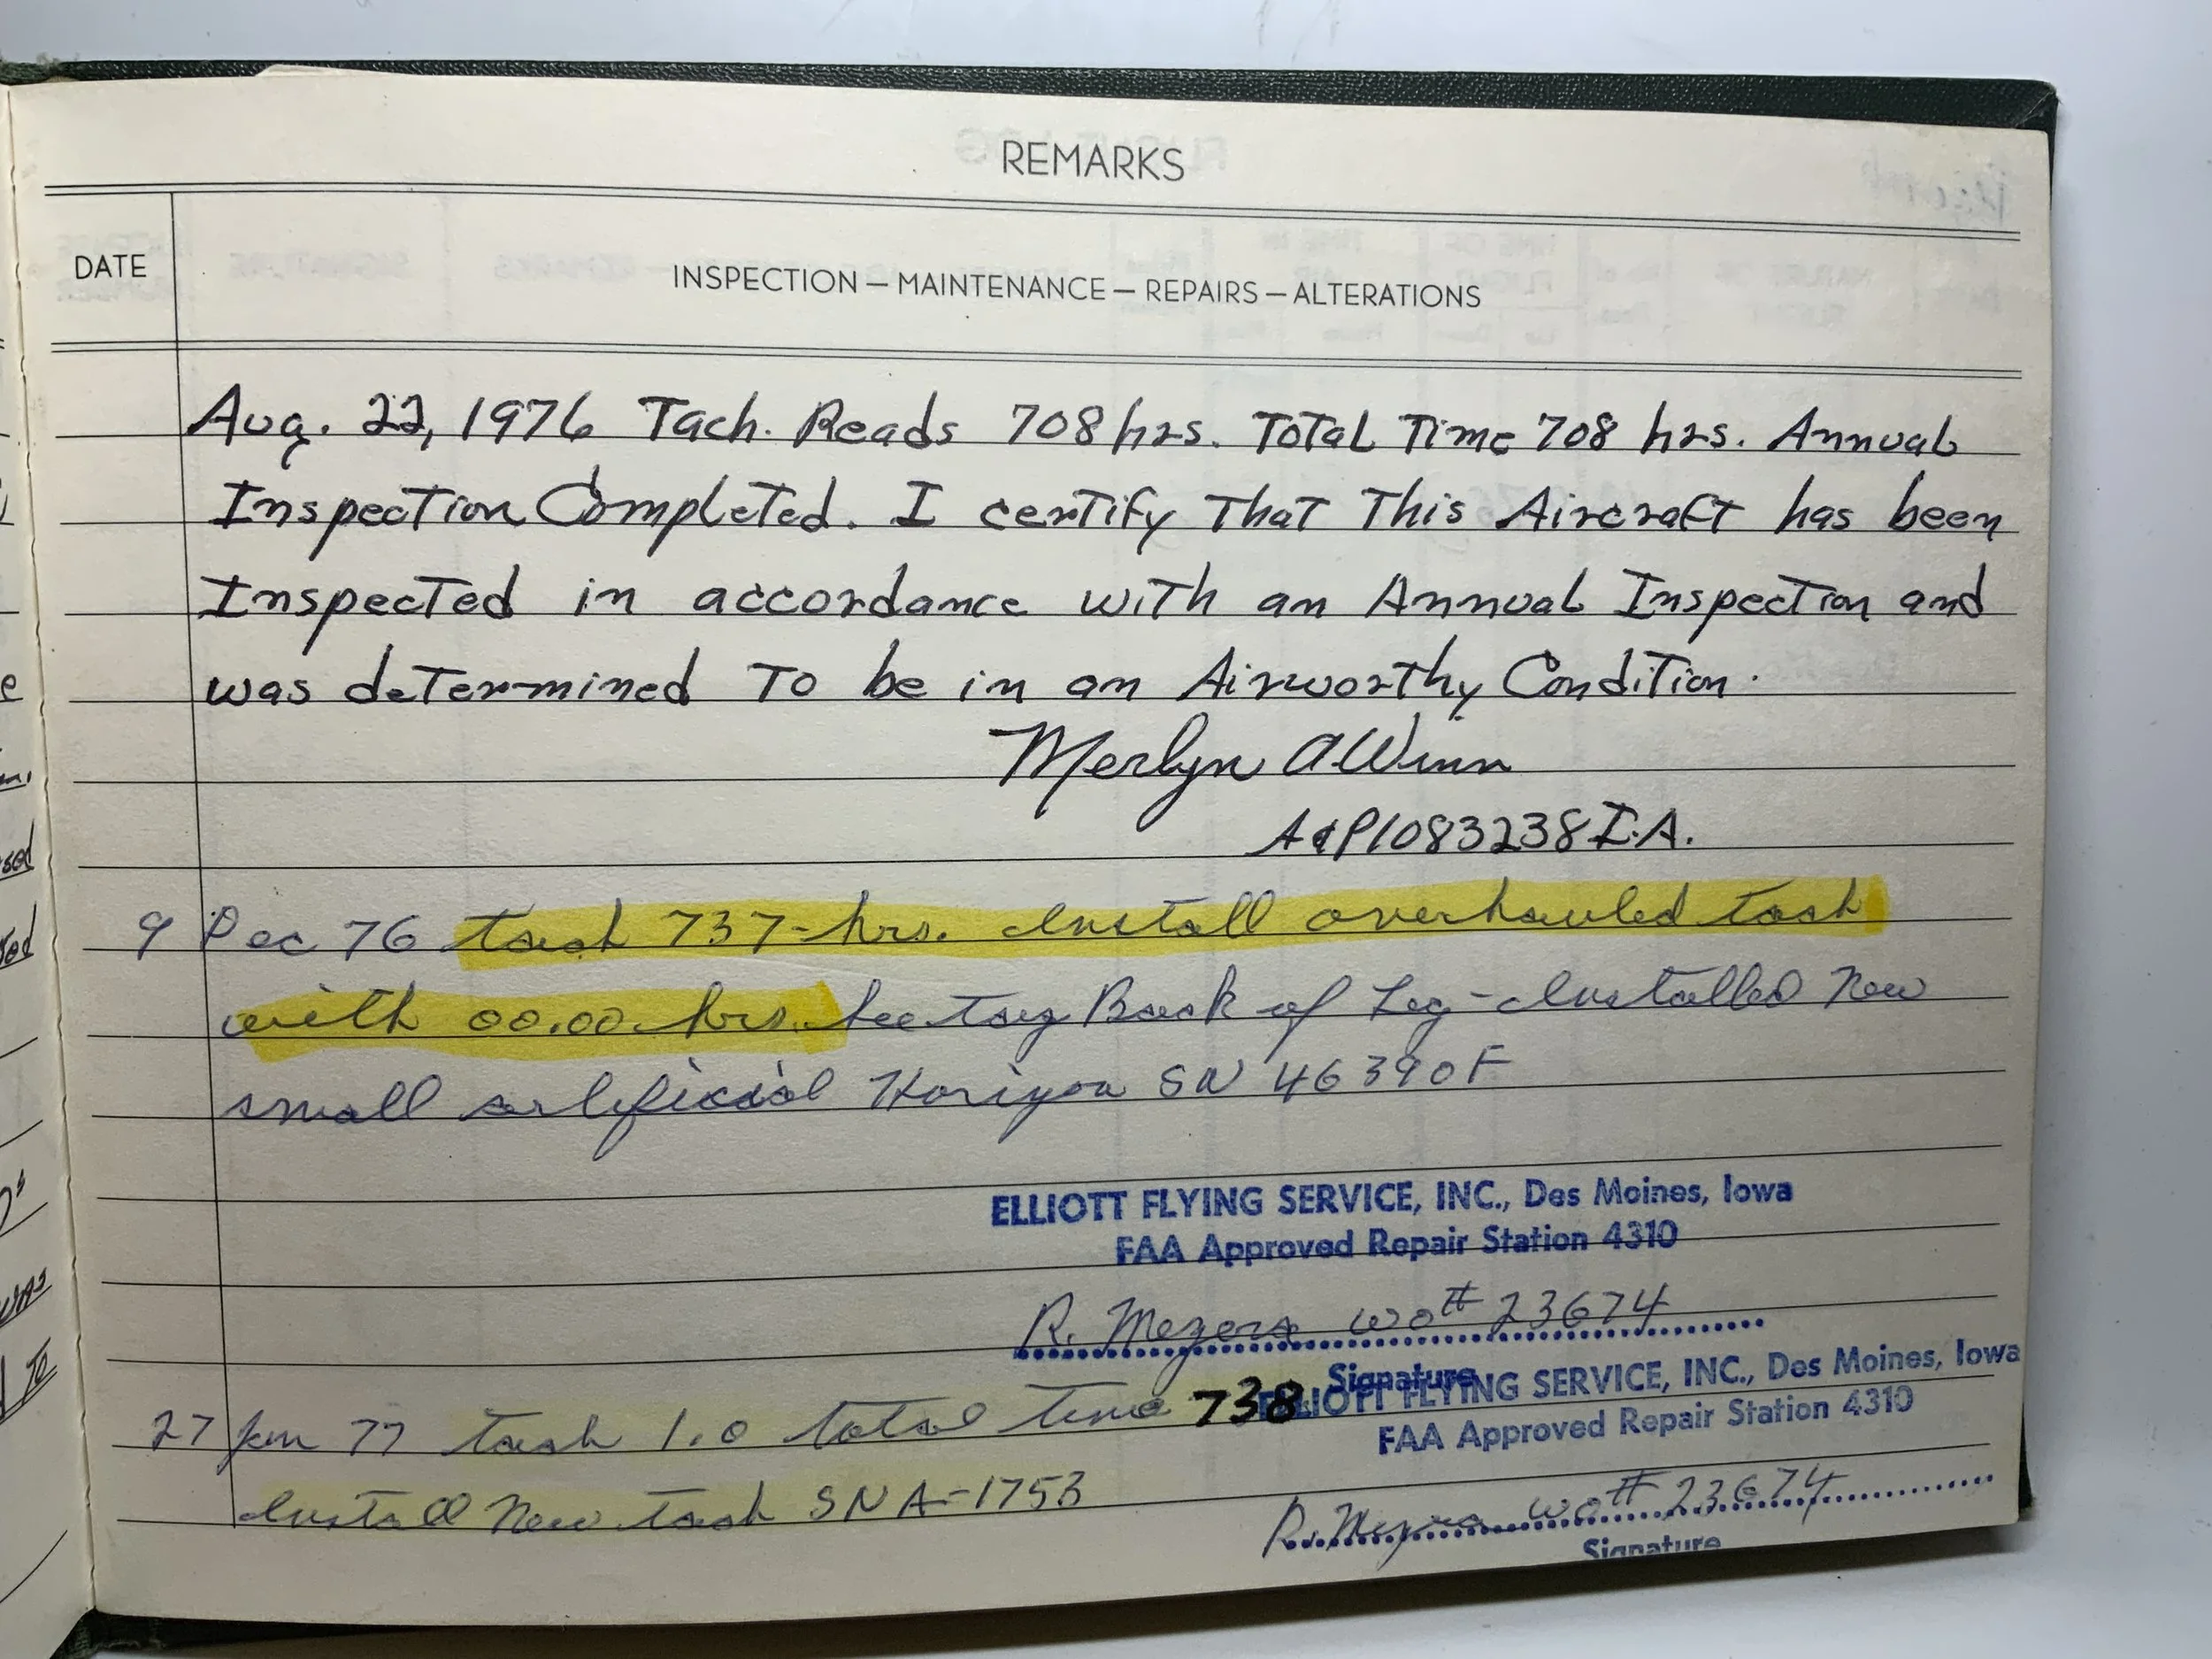 REMARKS
DATE
INSPECTION — MAINTENANCE — REPAIRS — ALTERATIONS
Aug. 22, 1976 Tach. Reads 708 hrs. Total Time 708 hrs. Annual
Inspection Completed. I certify That This Aircraft has been
Inspected in accordance with an Annual Inspection and
was determined To be in an Airworthy Condition.
Merlyn A Winn
A&P1083238 I.A.
9 Dec 76 tach 737 hrs. Install overhauled tach
with 00.00 hrs. See tag Back of Log - Installed New
small artificial Horizon SN 46390F
ELLIOTT FLYING SERVICE, INC., Des Moines, Iowa
FAA Approved Repair Station 4310
R. Mezera wo# 23674
Signature
27 Jan 77 tach 1.0 total time 738
ELLIOTT FLYING SERVICE, INC., Des Moines, Iowa
FAA Approved Repair Station 4310
Install New tach SN A-1753
R. Mezera wo# 23674
Signature